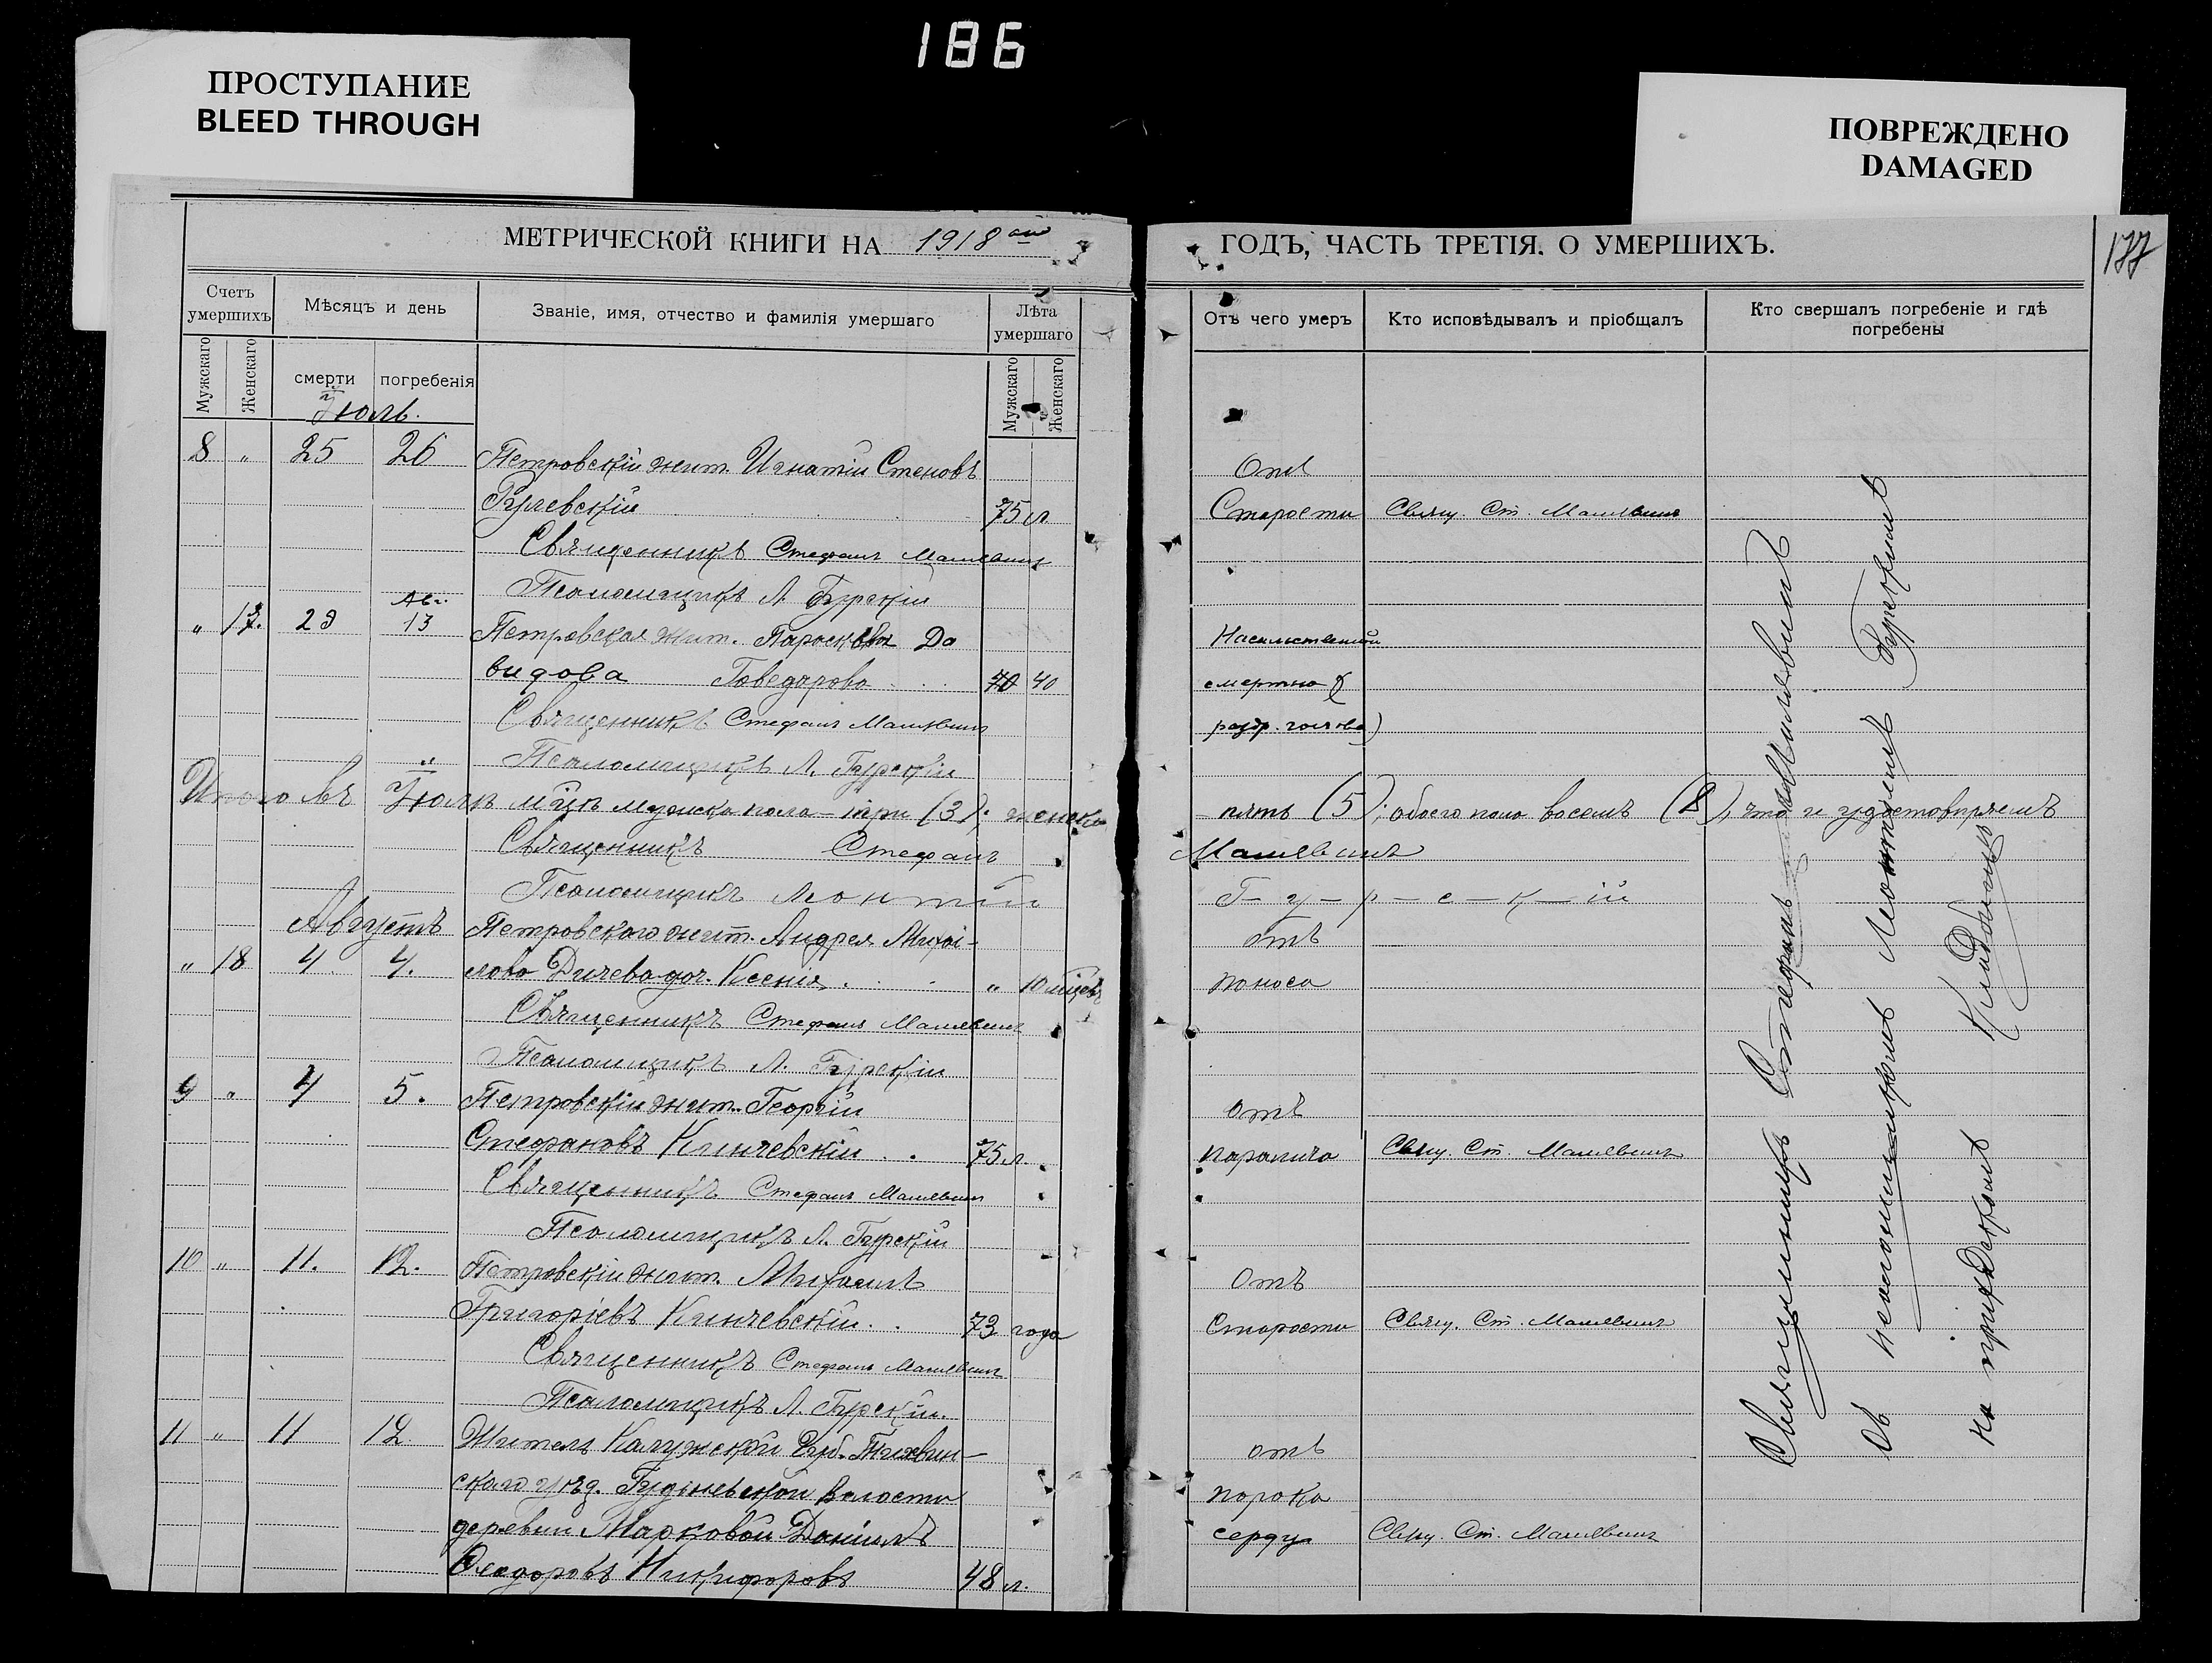 186
ПРОСТУПАНИЕ
BLEED THROUGH
ПОВРЕЖДЕНО
DAMAGED
МЕТРИЧЕСКОЙ КНИГИ НА 1918 ГОДЪ, ЧАСТЬ ТРЕТІЯ. О УМЕРШИХЪ.
177
Счетъ умершихъ
Мѣсяцъ и день
Званіе, имя, отчество и фамилія умершаго
Лѣта умершаго
Отъ чего умеръ
Кто исповѣдывалъ и пріобщалъ
Кто свершалъ погребеніе и гдѣ погребены
Мужскаго
Женскаго
смерти
погребенія
Мужскаго
Женскаго
Іюль.
8 " 25 26 Петровскій жит. Игнатій Стеновъ Отъ
Гулевскій 75 л Старости Свящ. Ст. Малявинъ
Священникъ Стефанъ Малявинъ
Псаломщикъ Л. Гурскій
Ав.
" 17. 29 13 Петровская жит. Параскева Да Насильственной
видова Говедарова 70 40 смертью (
разр. голова)
Священникъ Стефанъ Малявинъ
Псаломщикъ Л. Гурскій
Итого въ Іюлѣ м-цѣ мужска пола - три (3); женска пять (5); обоего пола восемъ (8), что и удостовѣряемъ
Священникъ Стефанъ Малявинъ
Псаломщикъ Леонтій Г-у-р-с-к-ій
Августъ Петровскаго жит. Андрея Михаи- отъ
" 18 4 4. лова Дичева доч. Ксенія " 10 мцевъ поноса
Священникъ Стефанъ Малявинъ
Псаломщикъ Л. Гурскій
9 " 4 5. Петровскій жит. Георгій отъ
Стефановъ Кинчевскій 75 л. паралича Свящ. Ст. Малявинъ
Священникъ Стефанъ Малявинъ
Псаломщикъ Л. Гурскій
10 " 11. 12. Петровскій жит. Михаилъ Отъ
Григоріевъ Кинчевскій 73 года Старости Свящ. Ст. Малявинъ
Священникъ Стефанъ Малявинъ
Псаломщикъ Л. Гурскій.
11 " 11 12. Житель Калужской Губ. Тихвин- отъ
скаго уѣзд. волости порока
деревни Марковой Даніилъ сердца Свящ. Ст. Малявинъ
Ѳеодоровъ Никифоровъ 48 л.
Священникъ Стефанъ Малявинъ
съ псаломщикомъ Леонтіемъ Гурскимъ
на приходскомъ кладбищѣ